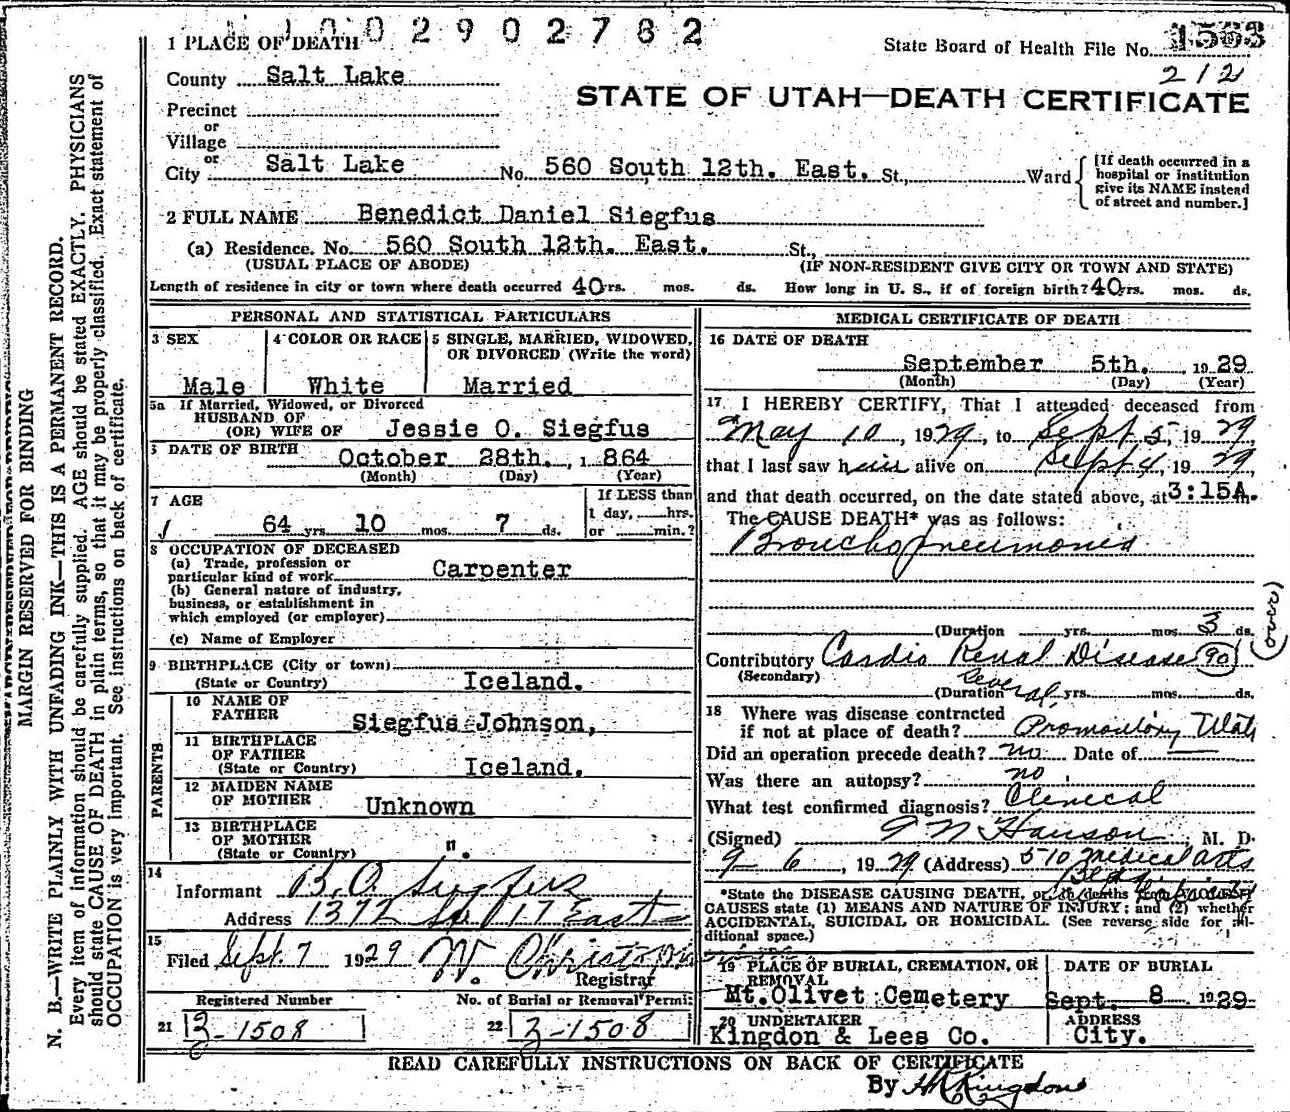 MARGIN RESERVED FOR BINDING
N. B.—WRITE PLAINLY WITH UNFADING INK—THIS IS A PERMANENT RECORD.
Every item of information should be carefully supplied. AGE should be stated EXACTLY. PHYSICIANS
should state CAUSE OF DEATH in plain terms, so that it may be properly classified. Exact statement of
OCCUPATION is very important. See instructions on back of certificate.
0 0 2 9 0 2 7 6 2
1 PLACE OF DEATH
State Board of Health File No. 1563
212
County Salt Lake
STATE OF UTAH—DEATH CERTIFICATE
Precinct
or
Village
or
City Salt Lake No. 560 South 12th. East. St., Ward
[If death occurred in a
hospital or institution
give its NAME instead
of street and number.]
2 FULL NAME Benedict Daniel Siegfus
(a) Residence. No. 560 South 12th. East. St.,
(USUAL PLACE OF ABODE) (IF NON-RESIDENT GIVE CITY OR TOWN AND STATE)
Length of residence in city or town where death occurred 40 yrs. mos. ds. How long in U. S., if of foreign birth? 40 yrs. mos. ds.
PERSONAL AND STATISTICAL PARTICULARS
3 SEX 4 COLOR OR RACE 5 SINGLE, MARRIED, WIDOWED,
OR DIVORCED (Write the word)
Male White Married
5a If Married, Widowed, or Divorced
HUSBAND OF
(OR) WIFE OF Jessie O. Siegfus
DATE OF BIRTH October 28th., 1864
(Month) (Day) (Year)
7 AGE If LESS than
1 day, hrs.
64 yrs 10 mos. 7 ds. or min.?
8 OCCUPATION OF DECEASED
(a) Trade, profession or
particular kind of work Carpenter
(b) General nature of industry,
business, or establishment in
which employed (or employer)
(c) Name of Employer
9 BIRTHPLACE (City or town)
(State or Country) Iceland.
PARENTS
10 NAME OF
FATHER Siegfus Johnson,
11 BIRTHPLACE
OF FATHER
(State or Country) Iceland.
12 MAIDEN NAME
OF MOTHER Unknown
13 BIRTHPLACE
OF MOTHER
(State or Country) ".
14
Informant B. O. Siegfus
Address 1372 So 17 East
15
Filed Sept. 7 1929 W. Christop
Registrar
Registered Number No. of Burial or Removal Permit
21 3-1508 22 3-1508
MEDICAL CERTIFICATE OF DEATH
16 DATE OF DEATH
September 5th. 1929
(Month) (Day) (Year)
17 I HEREBY CERTIFY, That I attended deceased from
May 10, 1929, to Sept 5, 1929
that I last saw him alive on Sept 4, 1929,
and that death occurred, on the date stated above, at 3:15A.
The CAUSE DEATH* was as follows:
Bronchopneumonia
(Duration yrs. mos. 3 ds.
Contributory Cardio Renal Disease 90
(Secondary)
(Duration Several yrs. mos. ds.
18 Where was disease contracted
if not at place of death? Promontory Utah
Did an operation precede death? no Date of
Was there an autopsy? no
What test confirmed diagnosis? Clenecal
(Signed) G N Hanson, M. D
9 6, 1929 (Address) 510 Medical Arts
Bldg
*State the DISEASE CAUSING DEATH, or in deaths from VIOLENT
CAUSES state (1) MEANS AND NATURE OF INJURY; and (2) whether
ACCIDENTAL, SUICIDAL OR HOMICIDAL. (See reverse side for ad-
ditional space.)
19 PLACE OF BURIAL, CREMATION, OR
REMOVAL
DATE OF BURIAL
Mt. Olivet Cemetery Sept. 8 1929
20 UNDERTAKER ADDRESS
Kingdon & Lees Co. City.
READ CAREFULLY INSTRUCTIONS ON BACK OF CERTIFICATE
By Kingdon